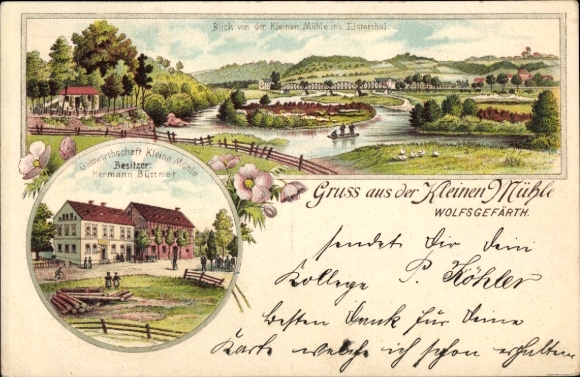 Blick von der Kleinen Mühle in's Elsterthal.
Gastwirthschaft Kleine Mühle
Besitzer:
Hermann Büttner
Gruss aus der Kleinen Mühle
WOLFSGEFÄRTH.
sendet Dir dein
Kollege P. Köhler
besten Dank für deine
Karte welche ich schon erhalten